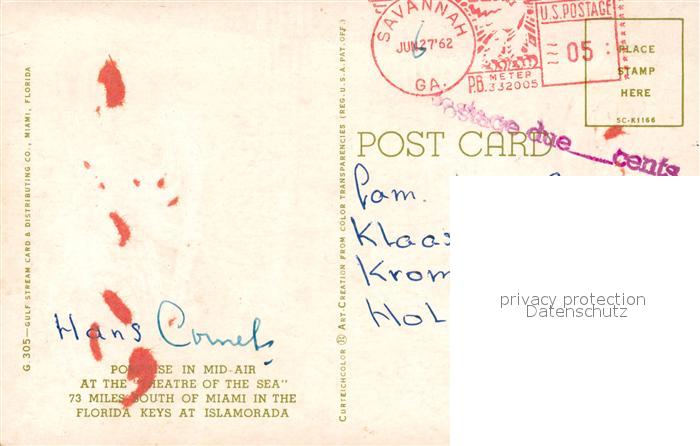 SAVANNAH
JUN 27 '62
6
GA.
U.S. POSTAGE
05
P.B. METER
332005
PLACE
STAMP
HERE
SC-K1166
postage due cents
POST CARD
Fam.
Klaas
Krom
Hol
privacy protection
Datenschutz
G.305—GULF STREAM CARD & DISTRIBUTING CO., MIAMI, FLORIDA
Hans
PORPOISE IN MID-AIR
AT THE "THEATRE OF THE SEA"
73 MILES SOUTH OF MIAMI IN THE
FLORIDA KEYS AT ISLAMORADA
CURTEICHCOLOR ® ART-CREATION FROM COLOR TRANSPARENCIES (REG. U.S.A. PAT. OFF.)